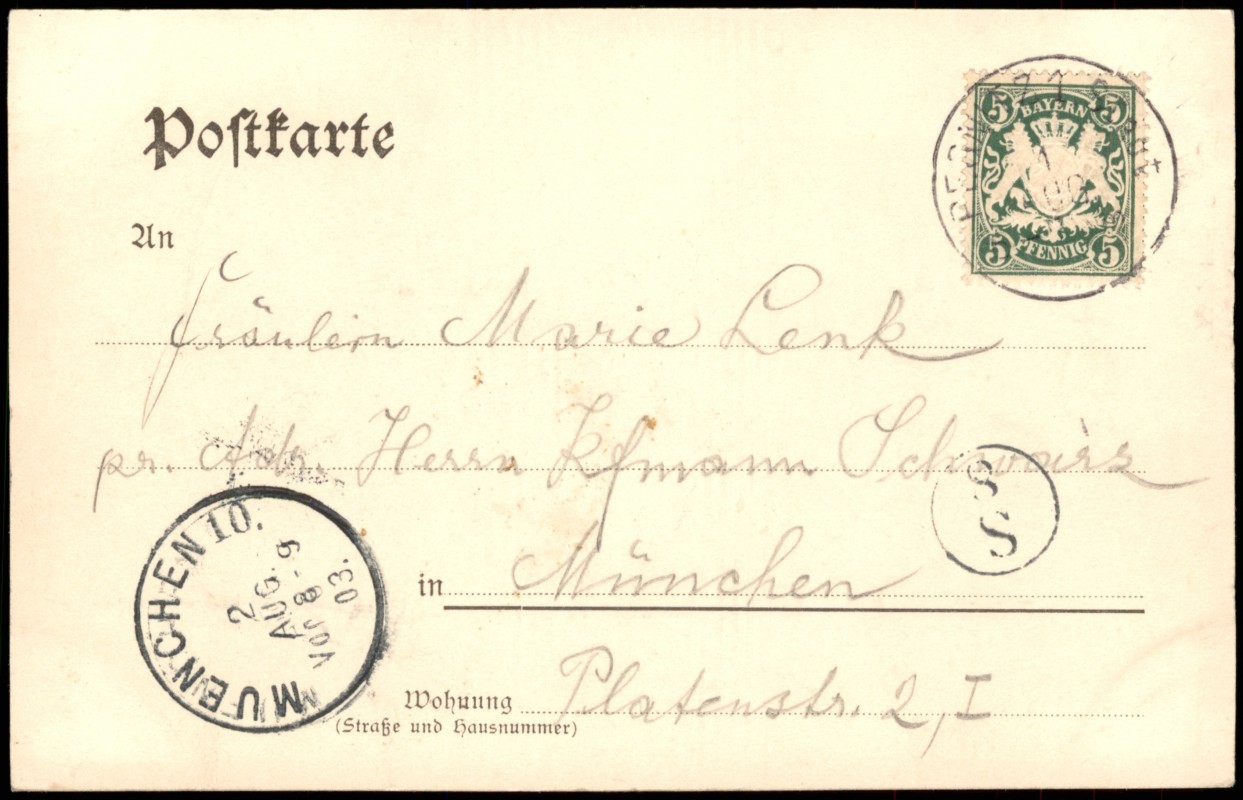 Postkarte
5 BAYERN 5
5 PFENNIG 5
An
Fräulein Marie Lenk
pr. Adr. Herrn Kfmann Schwarz
in München
Wohnung Platenstr. 2, I
(Straße und Hausnummer)
MUENCHEN 10.
2
AUG.
Vor 8-9
03.